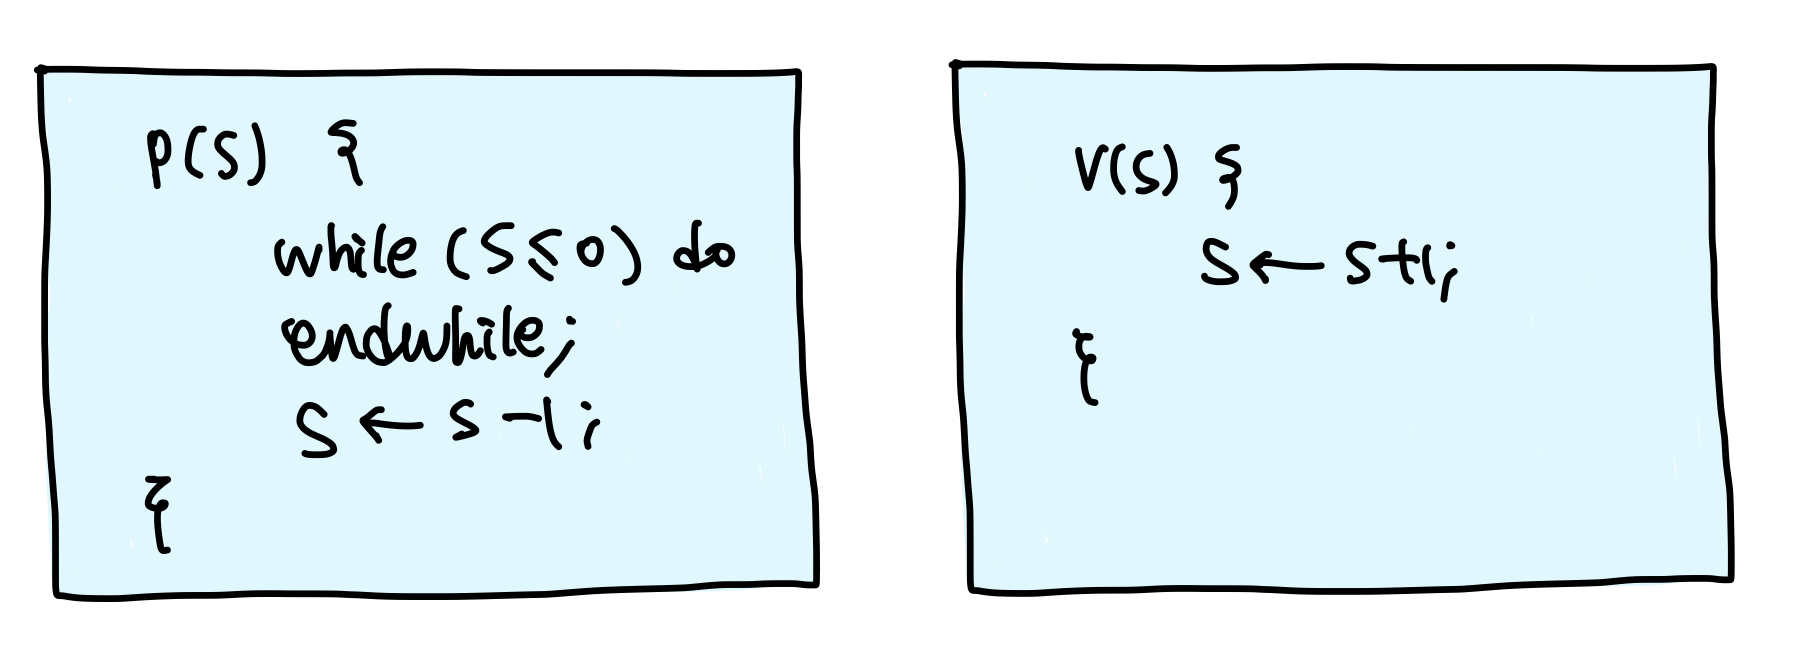 P(S) {
while (S ≤ 0) do
endwhile;
S ← S - 1;
{
V(S) {
S ← S+1;
{